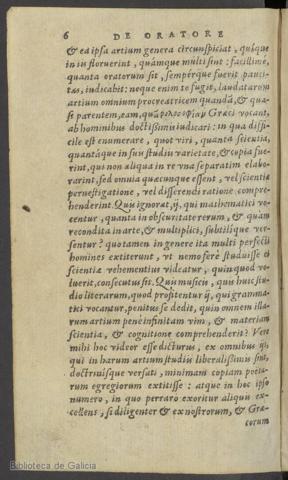 6 DE ORATORE
& ea ipsa artium genera circunspiciat, quíque
in ijs floruerint, quámque multi sint: facillime,
quanta oratorum sit, sempérque fuerit pauci-
tas, iudicabit: neque enim te fugit, laudatarum
artium omnium procreatricem quandã, & qua-
si parentem, eam, quã φιλοσοφίαν Græci vocant,
ab hominibus doctissimis iudicari: in qua diffi-
cile est enumerare, quot viri, quanta scientia,
quantáque in suis studijs varietate, & copia fue-
rint, qui non aliqua in re vna separatim elabo-
rarint, sed omnia quæcunque essent, vel scientiæ
peruestigatione, vel disserendi ratione compre-
henderint. Quis ignorat, ij, qui mathematici vo-
centur, quanta in obscuritate rerum, & quàm
recondita in arte, & multiplici, subtilíque ver-
sentur? quo tamen in genere ita multi perfecti
homines extiterunt, vt nemo ferè studuisse ei
scientiæ vehementius videatur, quin quod vo-
luerit, consecutus sit. Quis musicis, quis huic stu-
dio literarum, quod profitentur ij, qui gramma-
tici vocantur, penitus se dedit, quin omnem illa-
rum artium penè infinitam vim, & materiam
scientia, & cognitione comprehenderit? Verè
mihi hoc videor esse dicturus, ex omnibus ijs,
qui in harum artium studijs liberalissimis sint,
doctrinísque versati, minimam copiam poëta-
rum egregiorum extitisse: atque in hoc ipso
numero, in quo perrarò exoritur aliquis ex-
cellens, si diligenter & ex nostrorum, & Græ-
corum
Biblioteca de Galicia